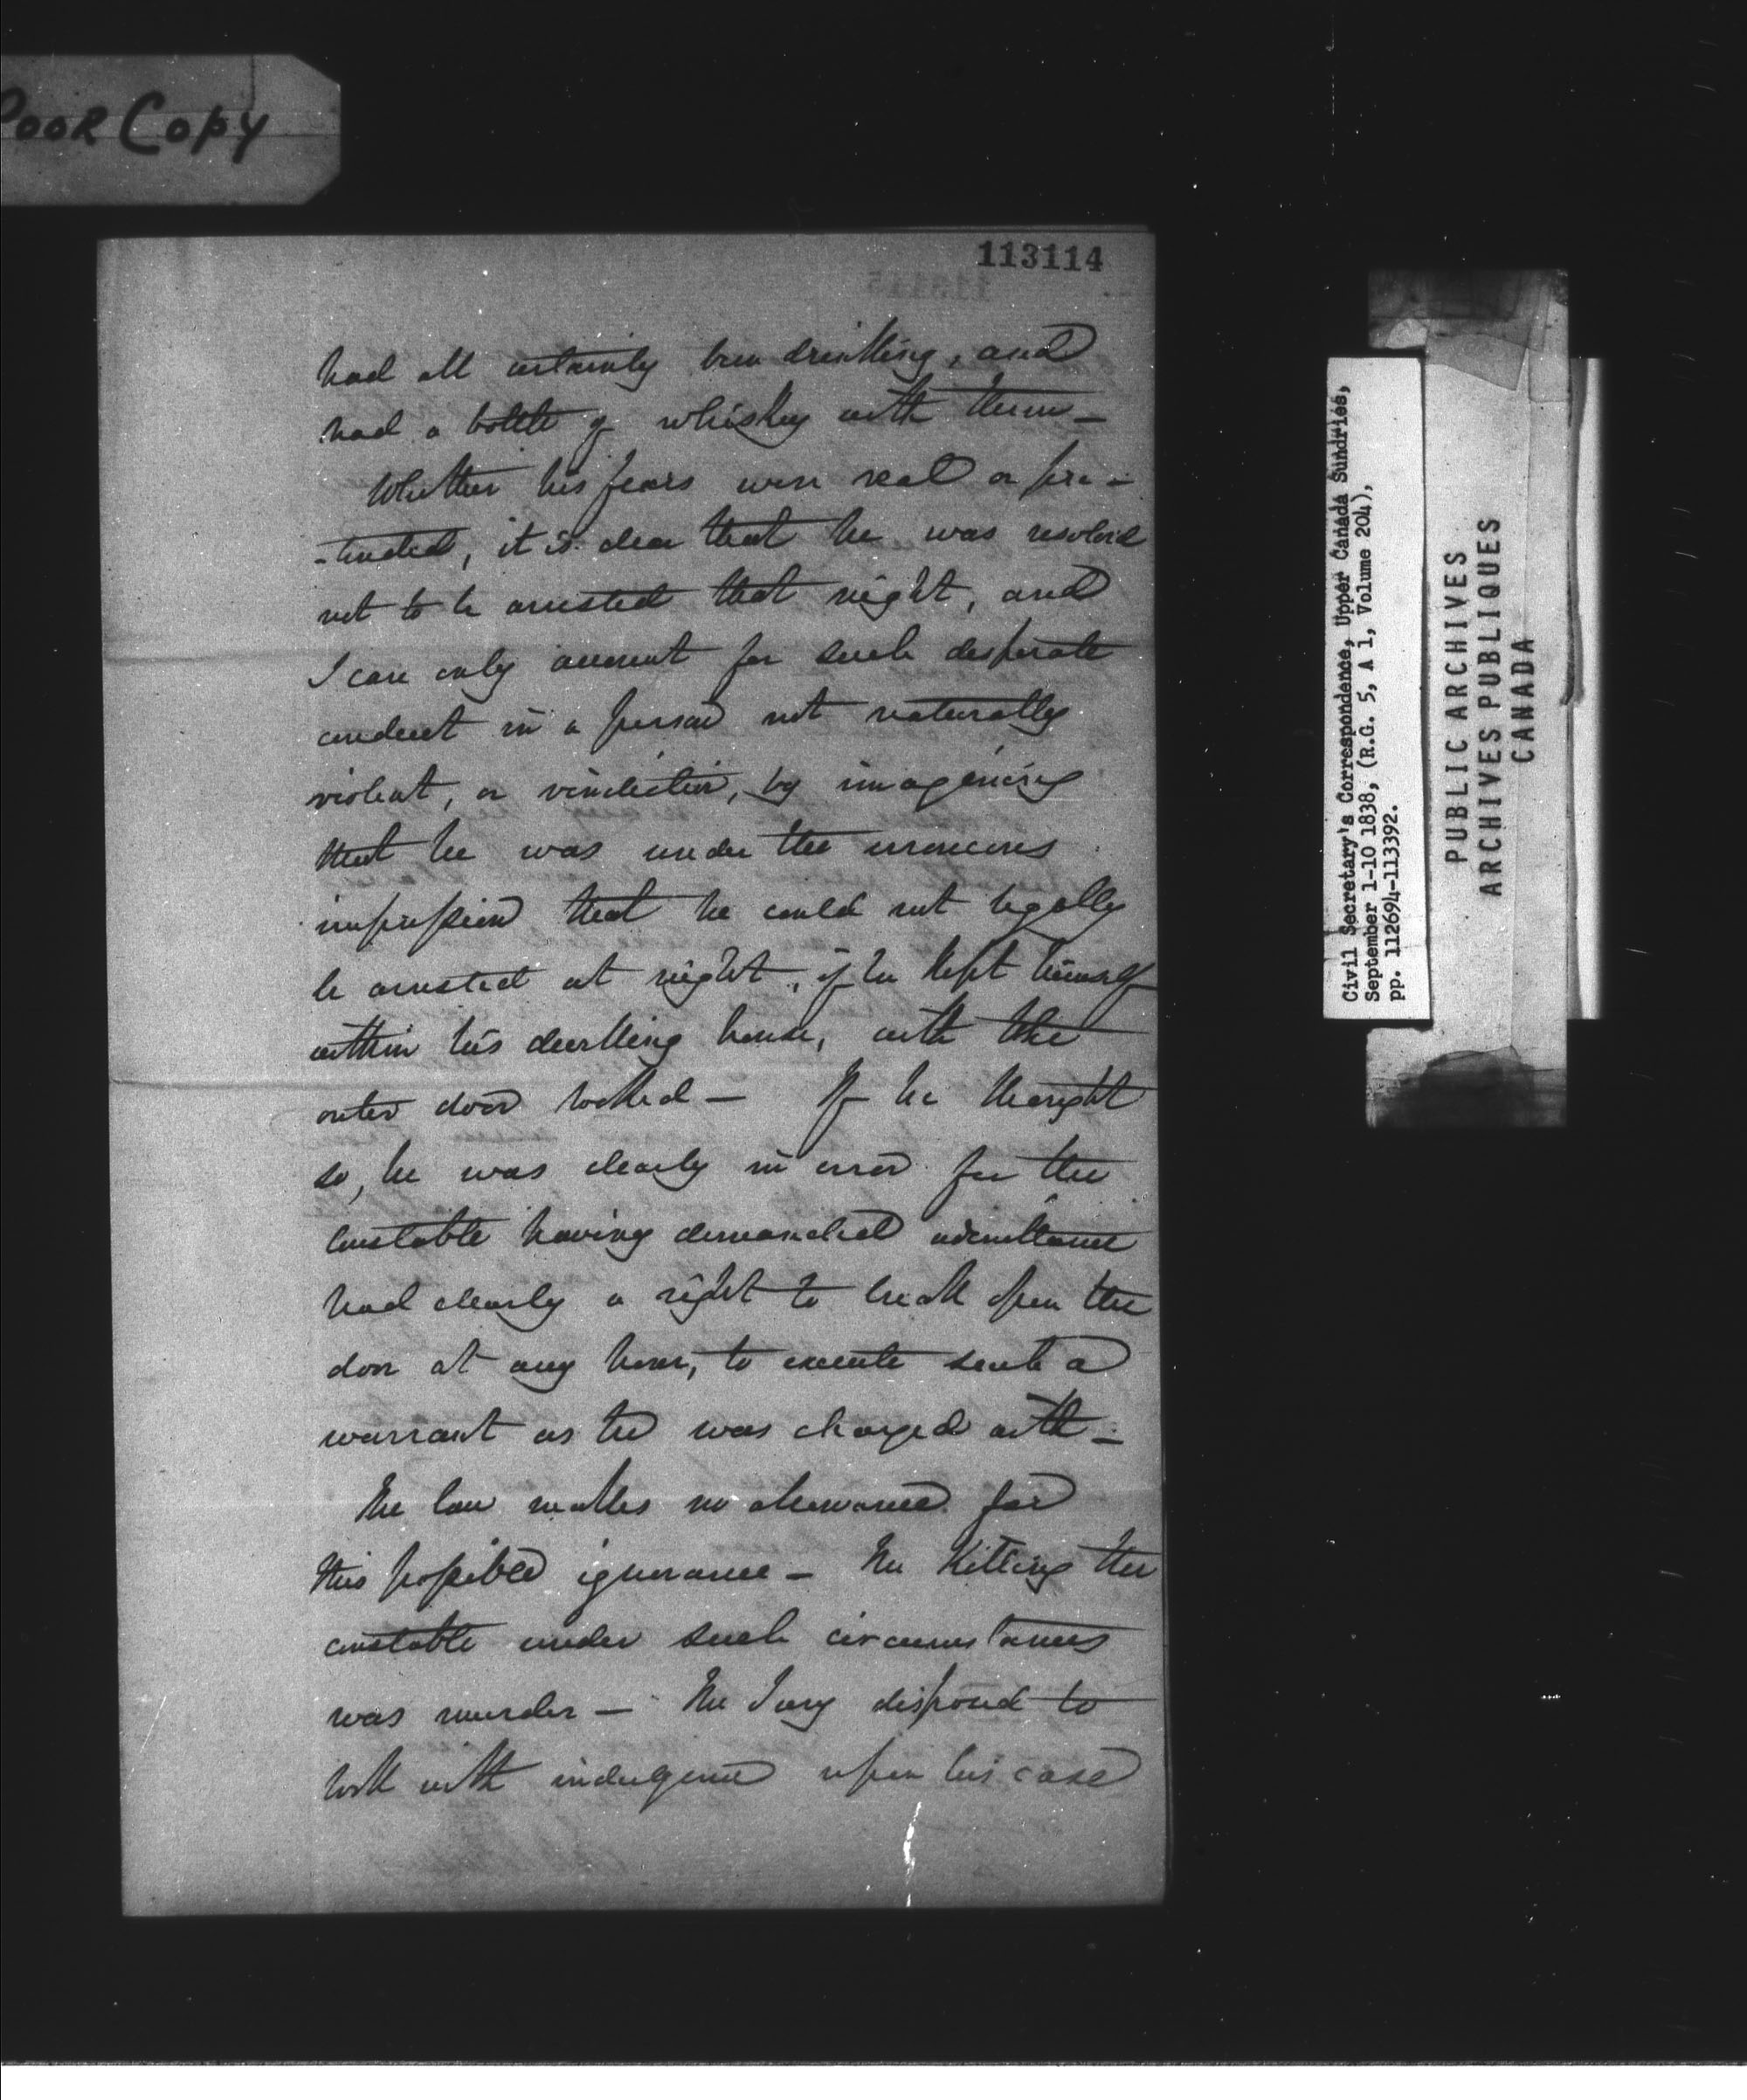 Poor Copy
113114
had all certainly been drinking, and
had a bottle of whiskey with them—
Whether his fears were real or pre-
-tended, it is clear that he was resolved
not to be arrested that night, and
I can only account for such desperate
conduct in a person not naturally
violent, or vindictive, by imagining
that he was under the erroneous
impression that he could not legally
be arrested at night, if he kept himself
within his dwelling house, with the
outer door locked— If he thought
so, he was clearly in error for the
Constable having demanded admittance
had clearly a right to break open the
door at any hour, to execute such a
warrant as he was charged with—
The law makes no allowance for
this possible ignorance— The killing the
constable under such circumstances
was murder— The Jury disposed to
look with indulgence upon his case
Civil Secretary's Correspondence, Upper Canada Sundries,
September 1-10 1838, (R.G. 5, A 1, Volume 204),
pp. 112694-113392.
PUBLIC ARCHIVES
ARCHIVES PUBLIQUES
CANADA